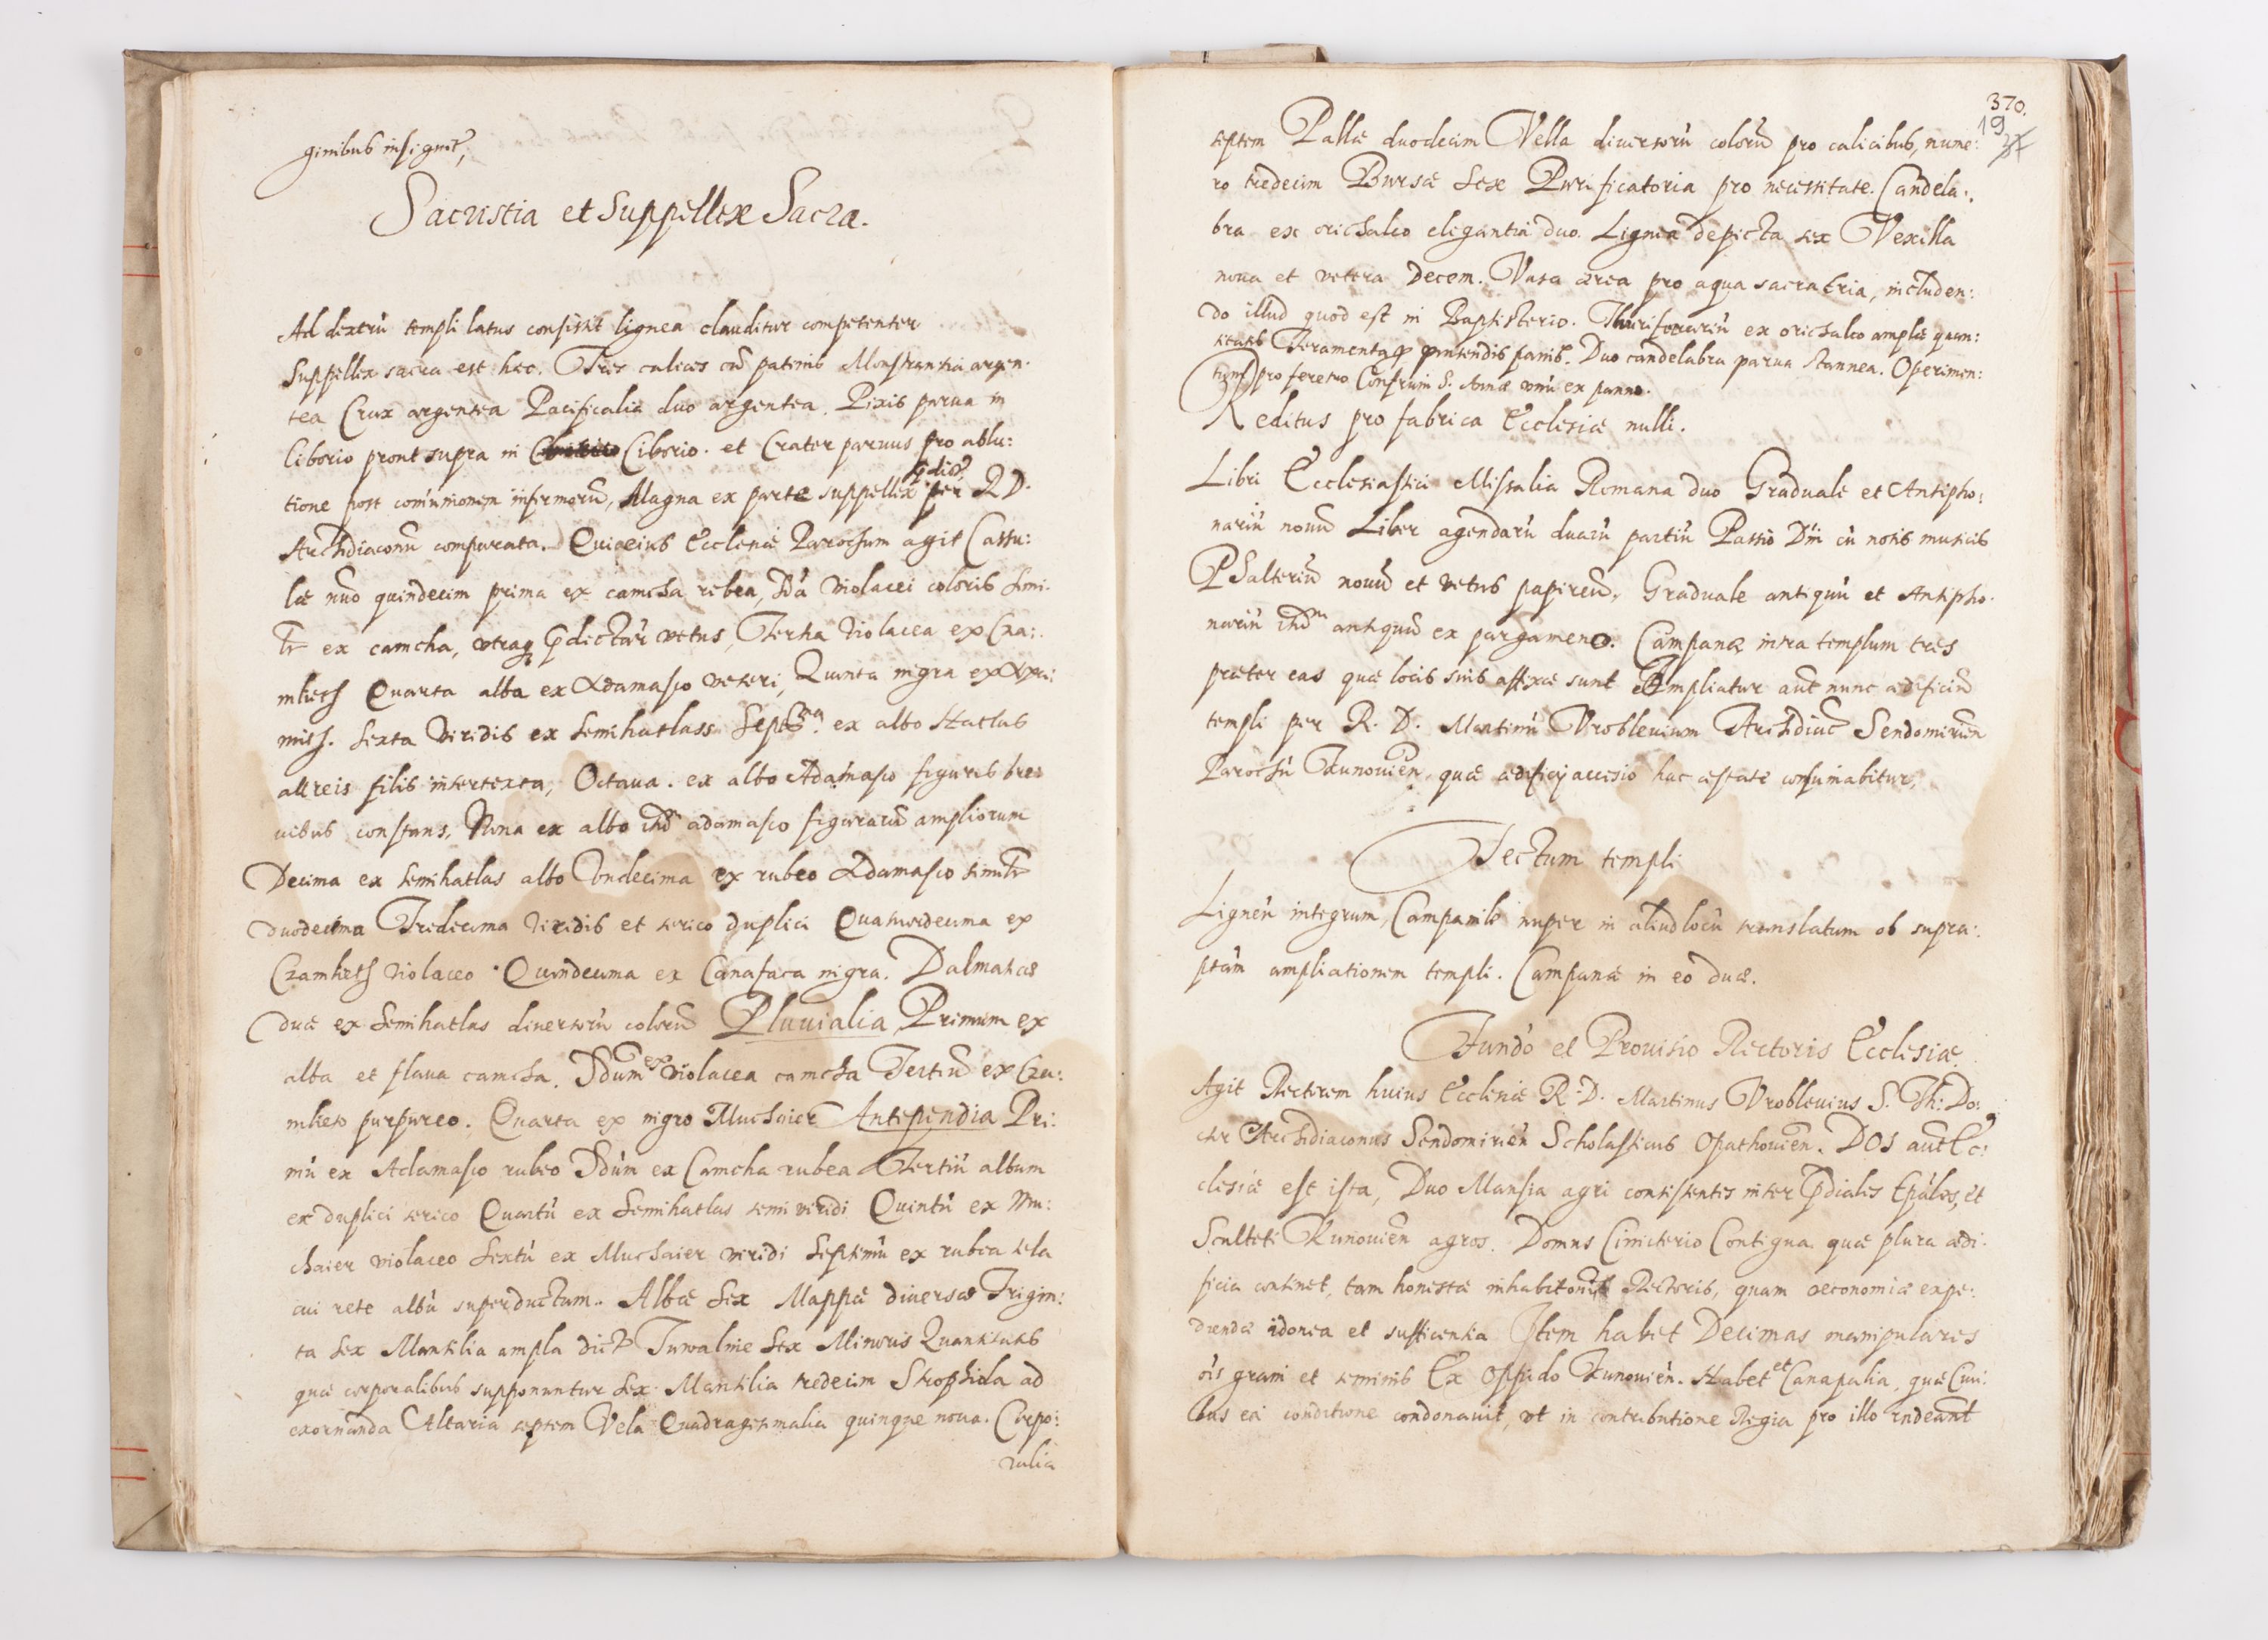 ginibus insignit,
Sacristia et Suppellex Sacra.
Ad dextrũ templi latus consistit lignea clauditur competenter
Suppellex sacra est hæc. Tres calices cũ patenis Monstrantia argen-
tea Crux argentea Pacificalia duo argentea. Pixis parua in
Ciborio prout supra in Ciborio. et Crater paruus pro ablu:
tione post com̃unionem infirmorũ, Magna ex parte suppellex per R D.
Archidiaconũ comparata. Qui eius Ecclesiæ Parochum agit Cassu:
læ nũo quindecim prima ex camcha rubea, Sdã violacei coloris simi-
lr̃ ex camcha, vtraq p̃dictarũ vetus, Tertia violacea ex Cza:
mlieth Quarta alba ex Adamasco veteri, Quinta nigra ex
mith. Sexta viridis ex Semihatlass Septima ex albo Hatlas
aureis filis intertexta, Octaua. ex albo Adamasco figuris bre:
uibus constans, Nona ex albo itid adamasco figurarũ ampliorum
Decima ex semihatlas albo Vndecima ex rubeo Adamasco similr̃
duodecima Tredecima viridis et serico duplici Quatuordecima ex
Czamleth violaceo. Quindecima ex Canafara nigra. Dalmaticæ
duæ ex Semihatlas diuersorũ colorũ Pluuialia Primum ex
alba et flaua camcha. Sdum ex violacea camcha Tertiũ ex Cza:
mleto purpureo. Quarta ex nigro Muchaier Antependia Pri:
mũ ex Adamasco rubeo Sdũm ex Camcha rubea Tertiũ album
ex duplici serico Quartũ ex Semihatlas semi viridi Quintũ ex Mu:
chaier violaceo Sextũ ex Muchaier viridi Septimũ ex rubea tela
cui rete albũ superductum. Albæ Sex Mappæ diuersæ Trigin:
ta sex Mantilia ampla dict Tuwalnie Sex Minoris Quantitatis
quæ corporalibus supponuntur Sex. Mantilia tredecim Strophiola ad
exornanda Altaria septem Vela Quadragesimalia quinque noua. Corpo:
ralia
370.
19
septem Pallæ duodecim Vella diuersorũ colorũ pro calicibus, nume:
ro tredecim Bursæ Sex Purificatoria pro necessitate. Candela:
bra ex orichalco elegantia duo. Lignea depicta sex Vexilla
noua et vetera Decem. Vasa ærea pro aqua sacra tria, includen:
do illud quod est in Baptisterio. Thuriforariũ ex orichalco amplæ quan:
titatis Feramenta p pinsendis panib. Duo candelabra parua stannea. Operimen:
tum pro feretro Confrum S. Annæ vnũ ex panno.
Reditus pro fabrica Ecclesiæ nulli.
Libri Ecclesiastici Missalia Romana duo Graduale et Antipho:
nariũ nouũ Liber agendarũ duarũ partiũ Passio Dñi cũ notis musicis
PSalteriũ nouũ et vetus papireũ, Graduale antiquũ et Antipho-
nariũ itid̃m antiquũ ex pargameno. Campanæ intra templum tres
præter eas quæ locis suis affixæ sunt Ampliatur aut̃ nunc ædificiũ
templi per R. D. Martinũ Vroblevium Archidiac̃ Sendomirieñ
Parochũ Kunouieñ, quæ ædificij accesio hac æstate consumabitur,
Tectum templi
Ligneũ integrum, Campanile nuper in aliud locũ translatum ob supra:
ptãm ampliationem templi. Campanæ in eo duæ.
Fundõ et Prouisio Rectoris Ecclesiæ
Agit Rectorem huius Ecclesiæ R. D. Martinus Vroblevius S. Th: Do:
ctor Archidiaconus Sendomirieñ Scholasticus Opathouieñ. DOS aut̃ Ec:
clesiæ est ista, Duo Mansia agri consistentis inter p̃diales Ep̃ales, et
Sculteti Kunouieñ agros. Domus Cimiterio Contigua quæ plura ædi:
ficia continet, tam honestæ inhabitonis Rectoris, quam oeconomiæ expe:
diendæ idonea et sufficientia Item habet Decimas manipulares
oĩs grani et seminis Ex Oppido Kunouieñ. Habet et Canapalia, quæ Ciui:
bus ea conditione condonauit, vt in contributione Regia pro illo